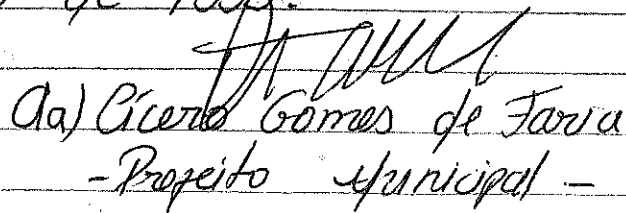 de
a a) Cícero Gomes de Faria
- Prefeito Municipal -